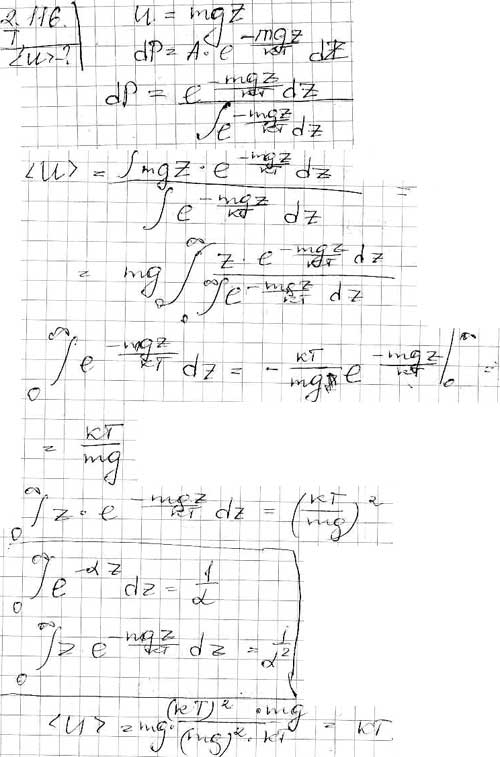 2.116. U = mgz
T dP = A·e^{-mgz/кT} dz
<U>-?
dP = e^{-mgz/кT} dz / ∫e^{-mgz/кT} dz
<U> = ∫mgz·e^{-mgz/кT} dz / ∫e^{-mgz/кT} dz =
= mg ∫_0^∞ z·e^{-mgz/кT} dz / ∫_0^∞ e^{-mgz/кT} dz
∫_0^∞ e^{-mgz/кT} dz = - кT/mg e^{-mgz/кT} |_0^∞ =
= кT/mg
∫_0^∞ z·e^{-mgz/кT} dz = (кT/mg)^2
∫_0^∞ e^{-αz} dz = 1/α
∫_0^∞ z e^{-mgz/кT} dz = 1/α^2
<U> = mg·(кT)^2·mg / (mg)^2·кT = кT